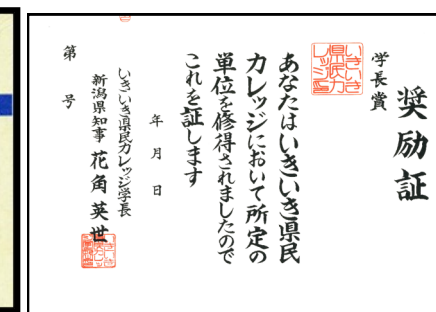 奨励証
学長賞
あなたはいきいき県民
カレッジにおいて所定の
単位を修得されましたので
これを証します
年 月 日
いきいき県民カレッジ学長
新潟県知事 花角英世
第 号